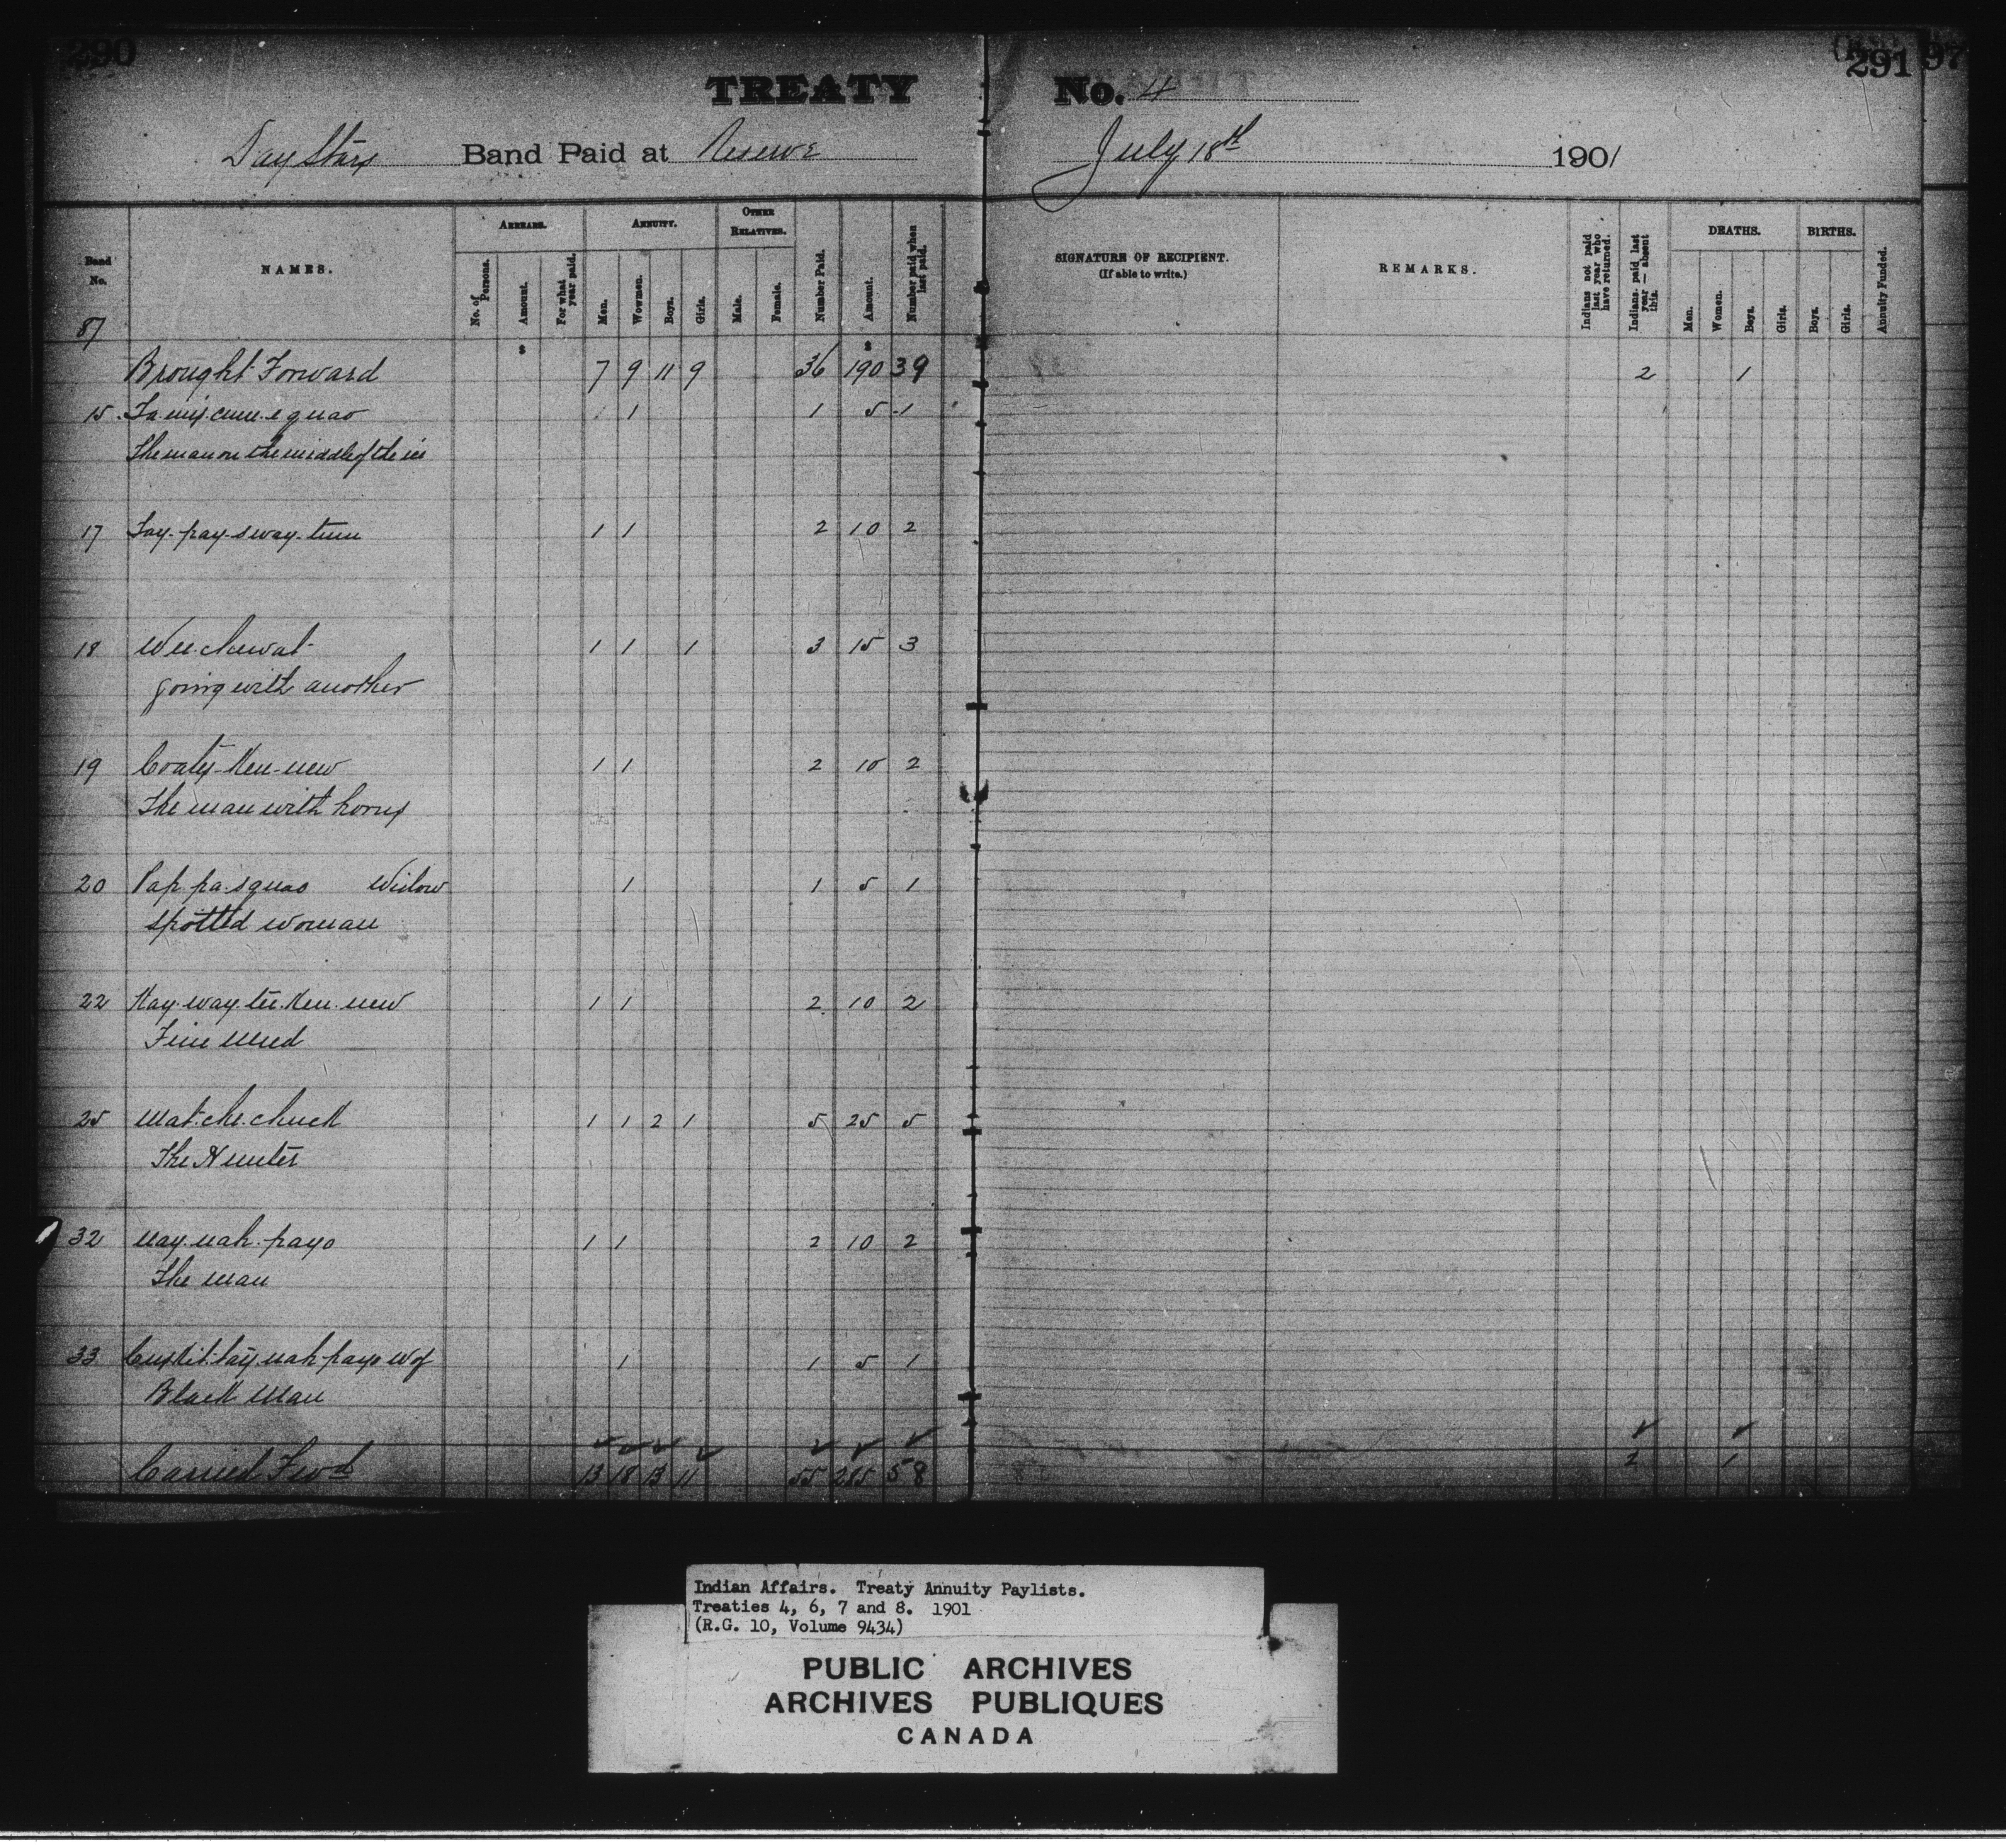 290
291
97
TREATY No. 4
Day Stars Band Paid at Reserve July 18th 1901
Band No.
NAMES.
ARREARS.
No. of Persons.
Amount.
For what year paid.
ANNUITY.
Men.
Wowmen.
Boys.
Girls.
OTHER RELATIVES.
Male.
Female.
Number Paid.
Amount.
Number paid when last paid.
SIGNATURE OF RECIPIENT.
(If able to write.)
REMARKS.
Indians not paid last year who have returned.
Indians paid last year — absent this.
DEATHS.
Men.
Women.
Boys.
Girls.
BIRTHS.
Boys.
Girls.
Annuity Funded.
87
$ $
Brought Forward 7 9 11 9 36 190 39 2 1
15 1 1 5 1
The man on the middle of the ice
17 Tay-pay-sway-tum 1 1 2 10 2
18 Wee-chewat- 1 1 1 3 15 3
going with another
19 1 1 2 10 2
The man with horns
20 Pap-pa-squao Widow 1 1 5 1
Spotted woman
22 Kay-way-tee-Ken-new 1 1 2 10 2
25 Mat-che-chuck 1 1 2 1 5 25 5
The Hunter
32 Nay-nah-payo 1 1 2 10 2
The Man
33 1 1 5 1
Black Man
Carried Fwd 13 18 13 11 55 285 58 2 1
Indian Affairs. Treaty Annuity Paylists.
Treaties 4, 6, 7 and 8. 1901
(R.G. 10, Volume 9434)
PUBLIC ARCHIVES
ARCHIVES PUBLIQUES
CANADA